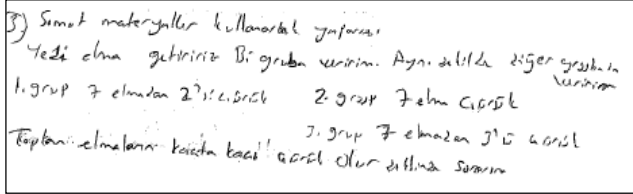 3) Somut materyaller kullanarak yaparız.
Yedi elma getiririz Bi gruba veririm. Aynı şekilde diğer gruba da veririm
1. grup 7 elmadan 2'si çürük 2. grup 7 elma çürük
3. grup 7 elmadan 3'ü çürük
Toplam elmaların kaçta kaçı çürük olur